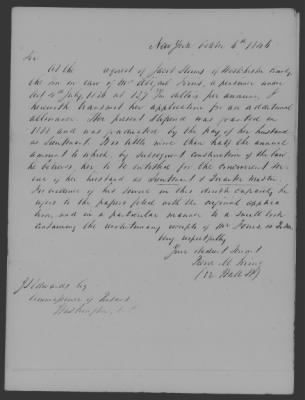 New York October 6th 1846
Sir
At the request of Jacob Stems of Westchester County
the son in law of Mrs Abigail Jones, a pensioner under
Act 4th July 1836 at 127 dollars per annum, I
herewith transmit her application for an additional
allowance. Her present stipend was granted in
and was graduated by the pay of her husband
as Lieutenant. It is little more than half the annual
amount to which by subsequent construction of the law
he believes her to be entitled for the concurrent ser-
vice of her husband as Lieutenant & Quarter Master.
For evidence of his service in this double capacity he
refers to the papers filed with the original applica-
tion, and in a particular manner to a small book
containing the revolutionary accounts of Mr Jones, as
Very respectfully
Your obedient Servant
(12 Wall St)
J L Edwards Esq
Commissioner of Pensions
Washington, D.C.